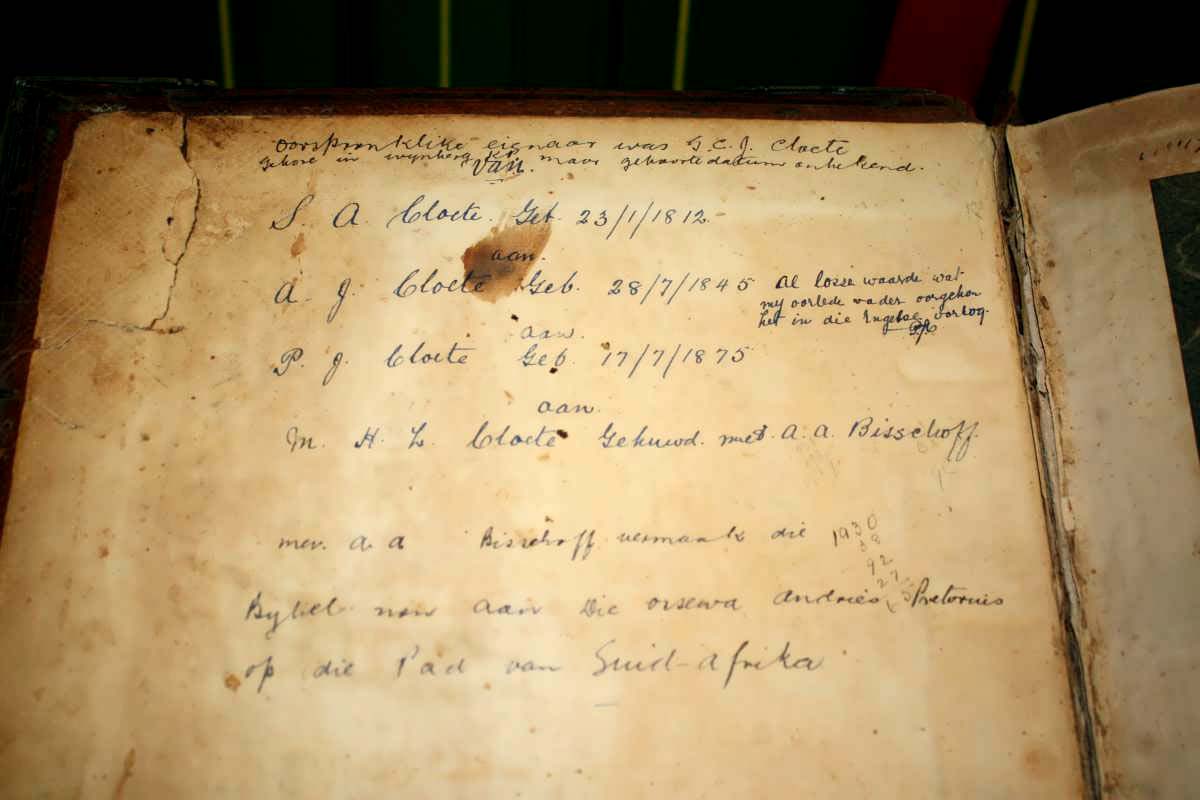 oorspronklike eienaar was G.C.J. Cloete
Gebore in Wynberg K.P. maar geboortedatum onbekend.
Van.
S. A. Cloete. Geb. 23/1/1812
aan.
A. J. Cloete Geb. 28/7/1845
Al losse waarde wat
my oorlede vader oorgehou
het in die Engelse oorlog.
aan.
P. J. Cloete Geb. 17/7/1875
aan.
M. H. L. Cloete Gehuwd. met A. A. Bisschoff.
mev. A. A Bisschoff vermaak die
1930
38
92
27
Bybel nou aan Die Andries Pretorius
op die Pad van Suid-Afrika